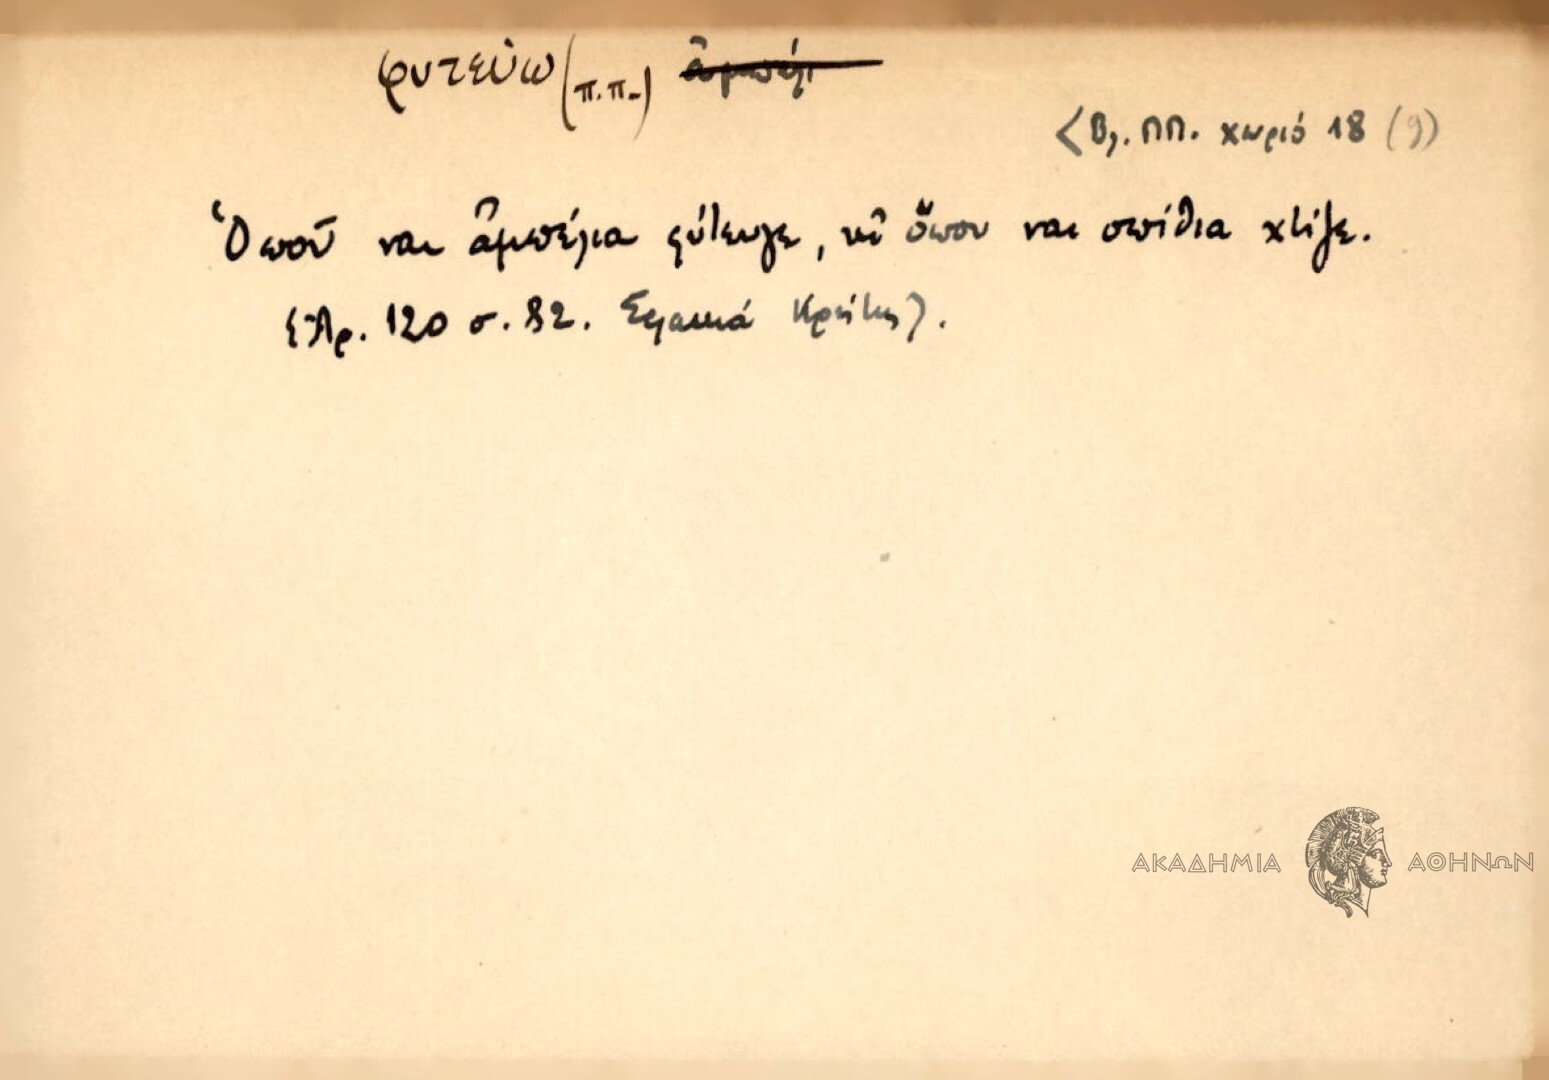 φυτεύω (π.π.) ἀμπέλι
<Βλ. ΠΠ. χωριό 18 (9)
Ὁποῦ ναι ἀμπέλια φύτευγε, κι ὅπου ναι σπίθια χτίζε.
(Ἀρ. 120 σ. 82. Σφακιά Κρήτης).
ΑΚΑΔΗΜΙΑ ΑΘΗΝΩΝ